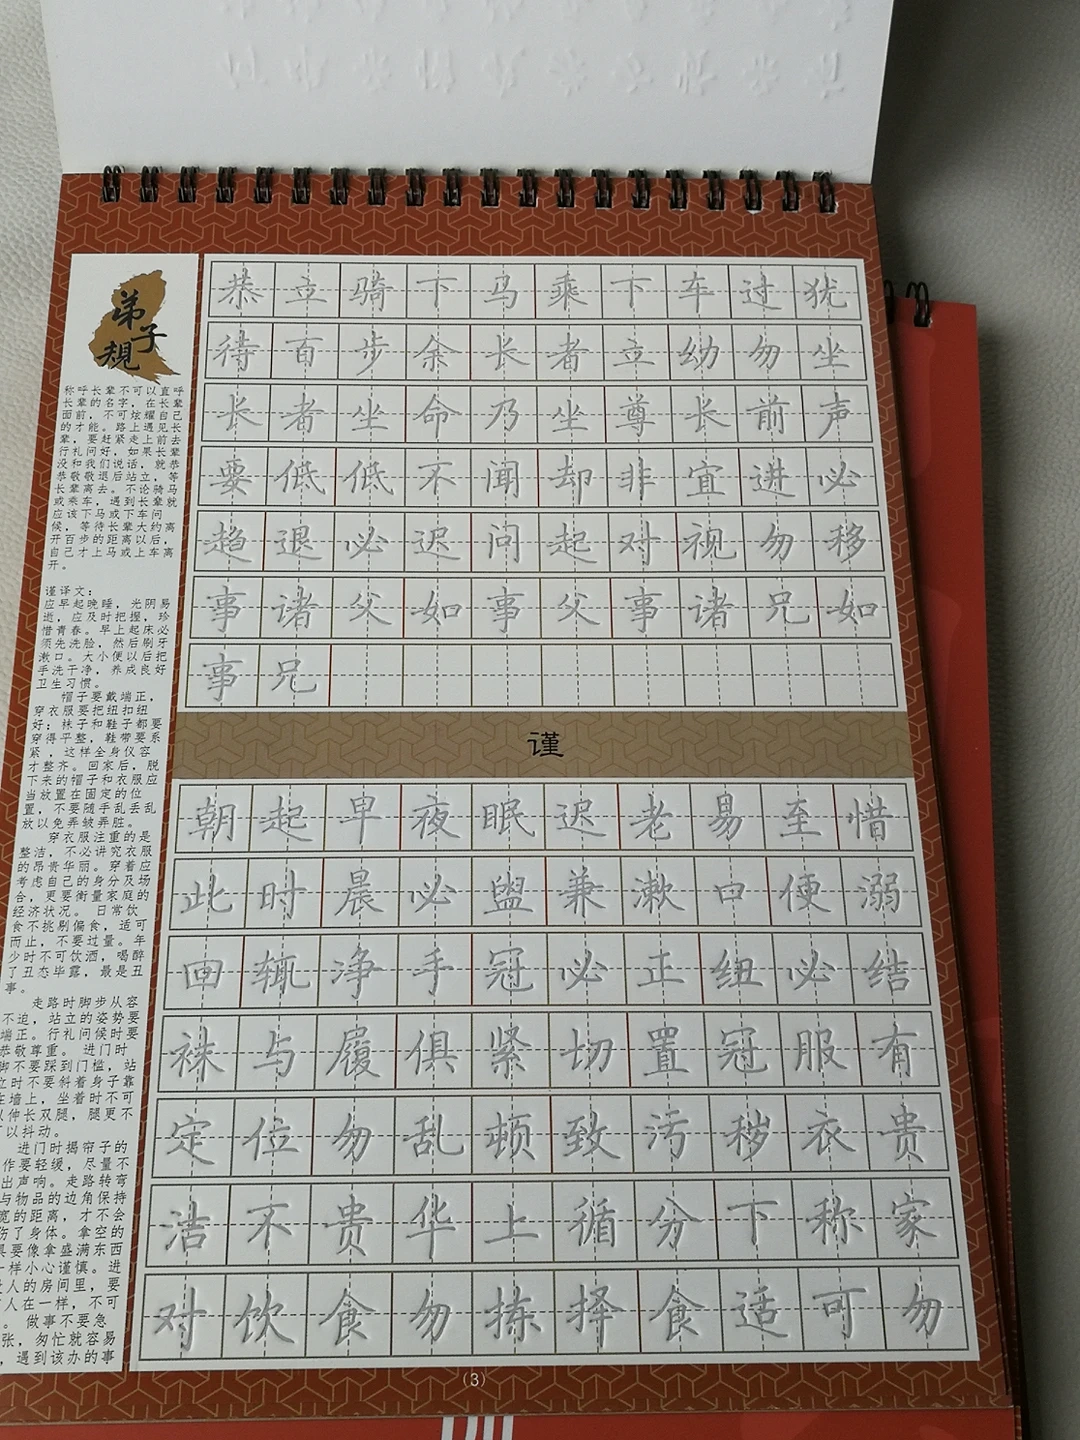 弟子规
称呼长辈不可以直呼
长辈的名字，在长辈
面前，不可炫耀自己
的才能。路上遇见长
辈，要赶紧走上前去
行礼问好，如果长辈
没和我们说话，就恭
恭敬敬退后站立，等
长辈离去。不论骑马
或乘车，遇到长辈就
应该下马或下车问
候，等待长辈大约离
开百步的距离以后，
自己才上马或上车离
开。
谨译文：
应早起晚睡，光阴易
逝，应及时把握，珍
惜青春。早上起床必
须先洗脸，然后刷牙
漱口。大小便以后把
手洗干净，养成良好
卫生习惯。
帽子要戴端正，
穿衣服要把纽扣纽
好；袜子和鞋子都要
穿得平整，鞋带要系
紧，这样全身仪容
才整齐。回家后，脱
下来的帽子和衣服应
当放置在固定的位
置，不要随手乱丢乱
放以免弄皱弄脏。
穿衣服注重的是
整洁，不必讲究衣服
的昂贵华丽。穿着应
考虑自己的身分及场
合，更要衡量家庭的
经济状况。日常饮
食不挑剔偏食，适可
而止，不要过量。年
少时不可饮酒，喝醉
了丑态毕露，最是丑
事。
走路时脚步从容
不迫，站立的姿势要
端正。行礼问候时要
恭敬尊重。进门时
脚不要踩到门槛，站
立时不要斜着身子靠
在墙上，坐着时不可
以伸长双腿，腿更不
可以抖动。
进门时揭帘子的
作要轻缓，尽量不
出声响。走路转弯
与物品的边角保持
宽的距离，才不会
伤了身体。拿空的
具要像拿盛满东西
一样小心谨慎。进
人的房间里，要
人在一样，不可
。做事不要急
张，匆忙就容易
，遇到该办的事
恭立骑下马乘下车过犹
待百步余长者立幼勿坐
长者坐命乃坐尊长前声
要低低不闻却非宜进必
趋退必迟问起对视勿移
事诸父如事父事诸兄如
事兄
谨
朝起早夜眠迟老易至惜
此时晨必盥兼漱口便溺
回辄净手冠必正纽必结
袜与履俱紧切置冠服有
定位勿乱顿致污秽衣贵
洁不贵华上循分下称家
对饮食勿拣择食适可勿
(3)